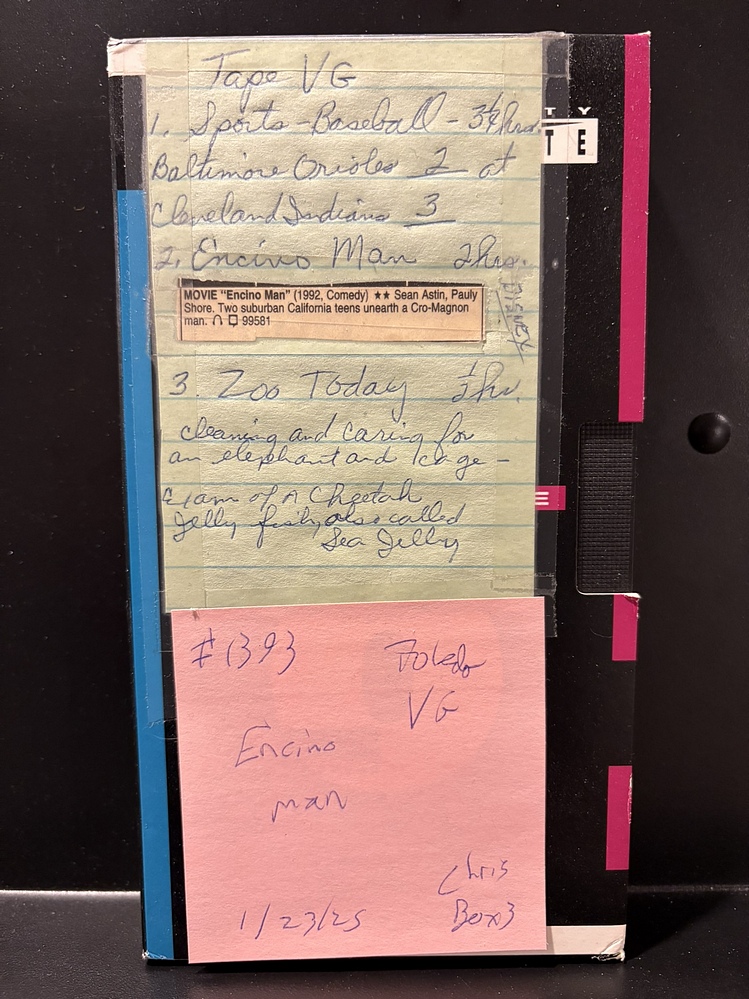 Tape VG
1. Sports - Baseball - 3¼ hrs.
Baltimore Orioles 2 at
Cleveland Indians 3
2. Encino Man 2 hrs.
DISNEY
MOVIE "Encino Man" (1992, Comedy) ★★ Sean Astin, Pauly
Shore. Two suburban California teens unearth a Cro-Magnon
man. 99581
3. Zoo Today ½ hr.
cleaning and caring for
an elephant and cage -
Exam of A Cheetah
Jelly fish, also called
Sea Jelly
TY
TE
E
#1393
Toledo
VG
Encino
man
Chris
Box 3
1/23/25